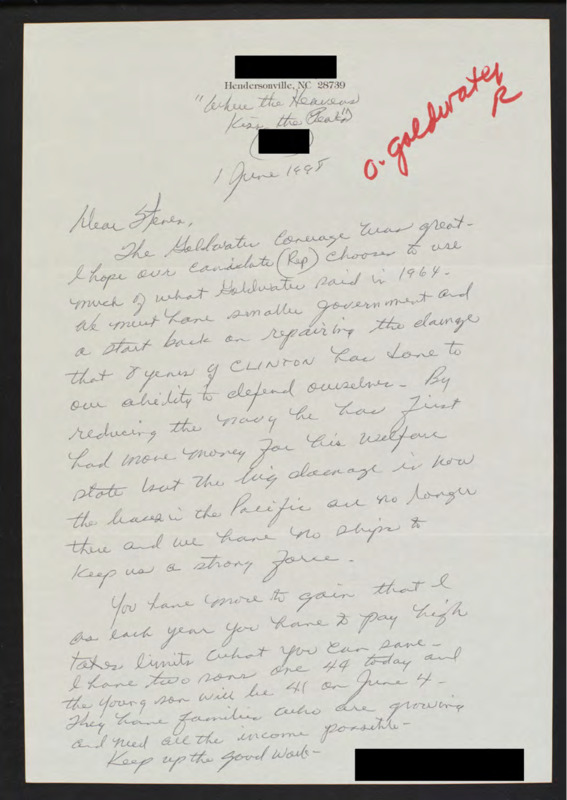 Hendersonville, NC 28739
"Where the Heavens
Kiss the Peaks"
O. Goldwater
R
1 June 1998
Dear Steven,
The Goldwater Coverage was great-
I hope our candidate (Rep) chooses to use
much of what Goldwater said in 1964-
We must have smaller government and
a start back on repairing the damage
that 8 years of CLINTON has done to
our ability to defend ourselves- By
reducing the Navy he has first
had more money for his welfare
state but the big damage is now
the bases in the Pacific are no longer
there and we have no ships to
keep us a strong force.
You have more to gain that I
as each year you have to pay high
taxes limits what you can save-
I have two sons one 44 today and
the young son will be 41 on June 4-
They have families who are growing
and need all the income possible-
Keep up the good work-